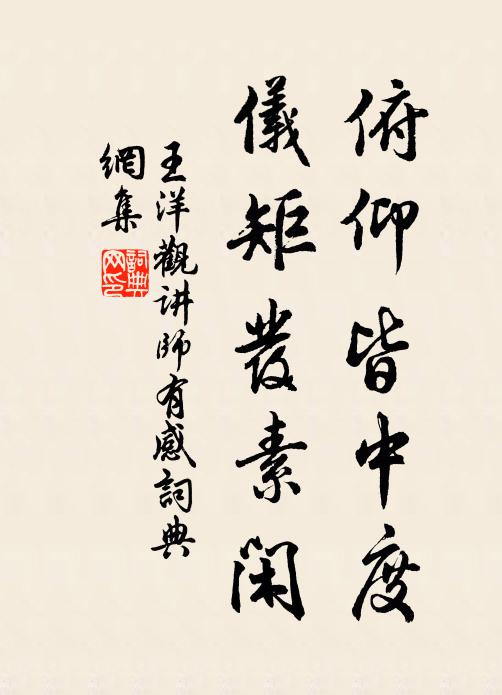 俯仰皆中度
儀矩發素闲
王洋觀讲師有感詞典
網集
詞典
网印